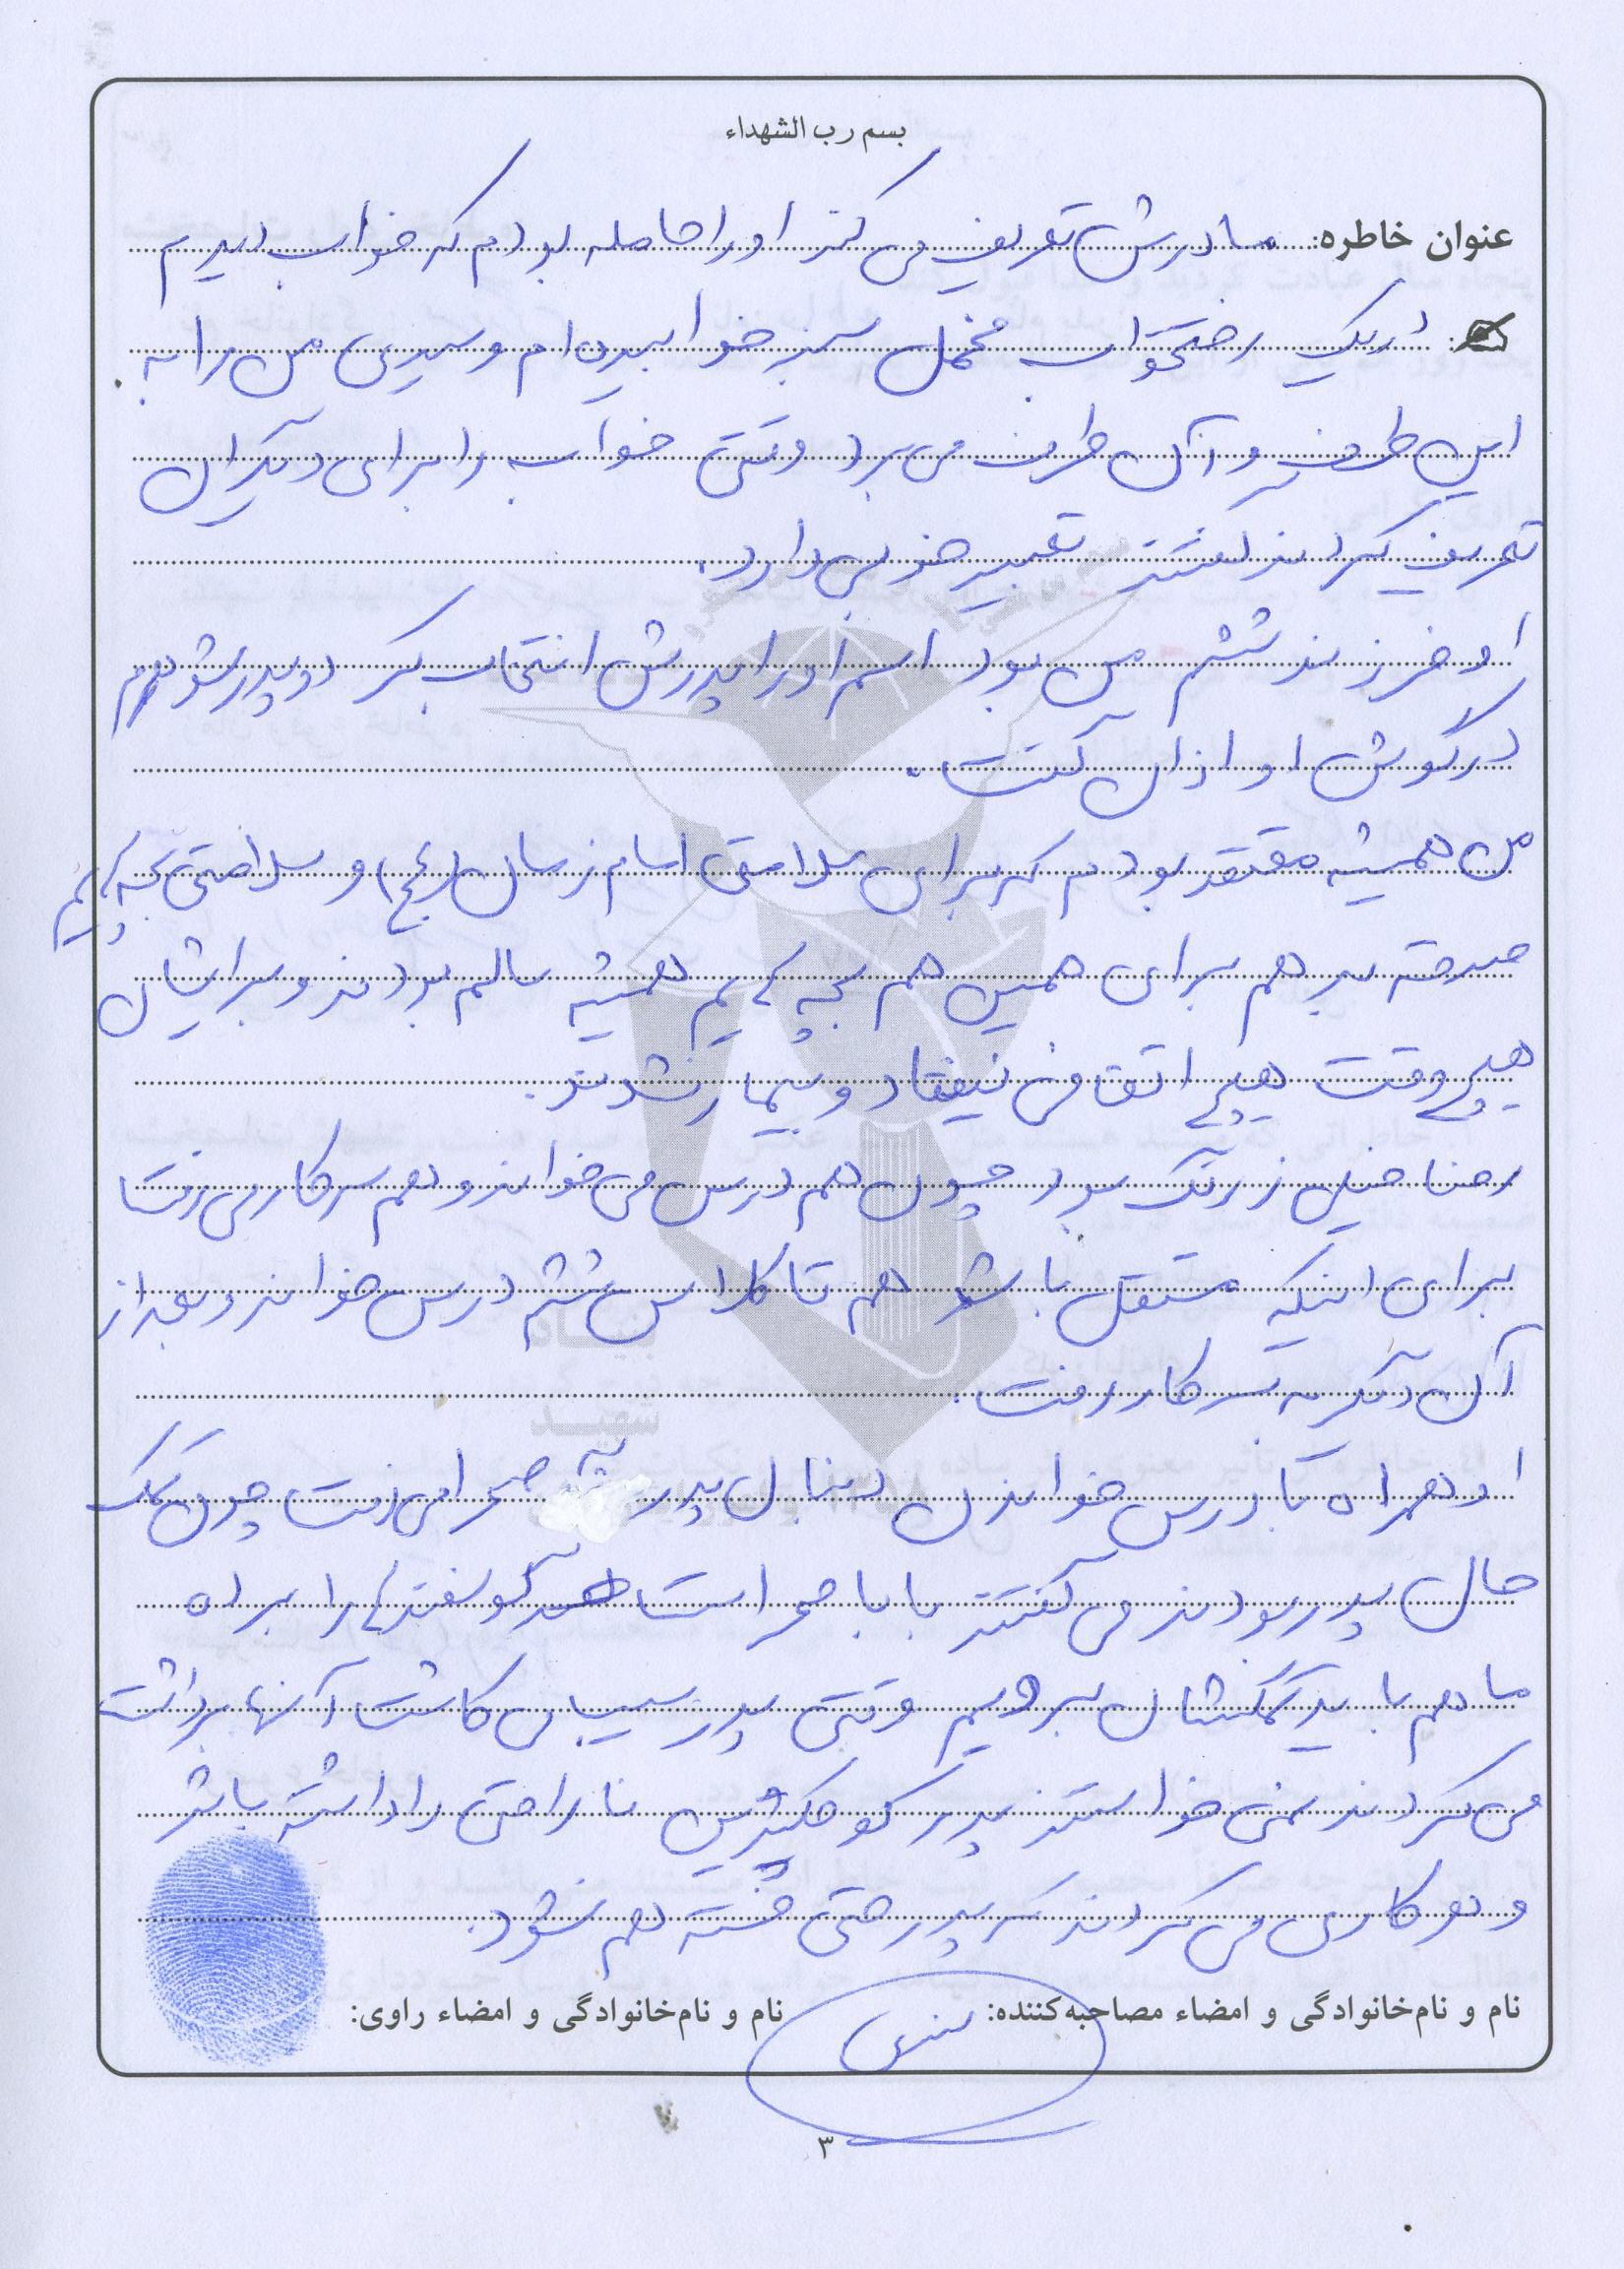 بسم رب الشهداء
عنوان خاطره: مادرش تعریف می کند او را حامله بودم که خواب دیدم
در یک رختخواب مخمل سبز خوابیده ام و سیدی من را به
این طرف و آن طرف می برد وقتی خواب را برای دیگران
تعریف کردند گفتند تعبیر خوبی دارد.
او فرزند ششم من بود اسم او را پدرش انتخاب کرد و پدر شوهرم
در گوش او اذان گفت.
من همیشه معتقد بودم که برای سلامتی امام زمان (عج) و سلامتی بچه هایم
صدقه بدهم برای همین هم بچه هایم همیشه سالم بودند و برایشان
هیچ وقت هیچ اتفاقی نیفتاد و بیمار نشدند.
رضا خیلی زرنگ بود چون هم درس می خواند و هم سر کار می رفت
برای اینکه مستقل باشد هم تا کلاس ششم درس خواند و بعد از
آن دیگر به سر کار رفت.
او همراه با درس خواندن دنبال پدر به صحرا می رفت چون کمک
حال پدر بودند می گفتند بابا صحراست گوسفندها را برده
ما هم باید کمکشان برویم وقتی پدر سیب می کاشت آنها برداشت
می کردند نمی خواستند پدر کوچکترین ناراحتی را داشته باشد
و هر کاری می کردند که پدر حتی خسته هم نشود.
نام و نام‌خانوادگی و امضاء مصاحبه‌کننده: نام و نام‌خانوادگی و امضاء راوی:
۳